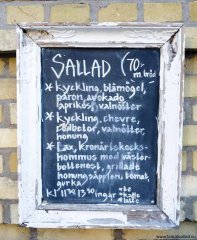 SALLAD (70:-
m. bröd
* kyckling, blåmögel,
päron, avokado
aprikos, valnötter
* kyckling, chevre,
rödbetor, valnötter,
honung
* Lax, kronärtskocks-
hommus med väster-
bottenost, grillade
honungsäpplen, tomat,
gurka
kl 11:30 13:30 ingår